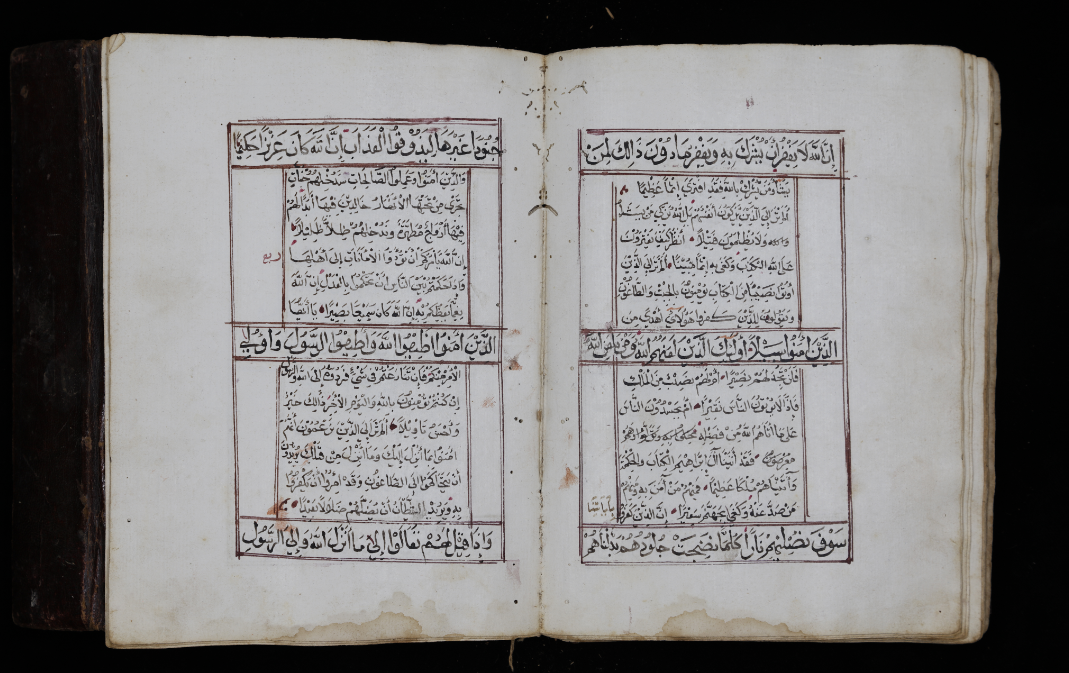 ان الله لا يغفر ان يشرك به ويغفر ما دون ذالك لمن
يشاء ومن يشرك بالله فقد افترى إثما عظيما
ألم تر إلى الذين يزكون أنفسهم بل الله يزكي من يشاء
ولا يظلمون فتيلا أنظر كيف يفترون
على الله الكذب وكفى به إثما مبينا ألم تر إلى الذين
أوتوا نصيبا من الكتاب يؤمنون بالجبت والطاغوت
ويقولون للذين كفروا هؤلاء أهدى من
الذين امنوا سبيلا أولئك الذين لعنهم الله ومن يلعن الله
فلن تجد لهم نصيرا أم لهم نصيب من الملك
فإذا لا يؤتون الناس نقيرا أم يحسدون الناس
على ما أتاهم الله من فضله
فقد أتينا آل إبراهيم الكتاب والحكمة
وآتيناهم ملكا عظيما فمنهم من آمن به ومنهم
من صد عنه وكفى بجهنم سعيرا إن الذين كفروا
باياتنا
سوف نصليهم نارا كلما نضجت جلودهم بدلناهم
جلودا غيرها ليذوقوا العذاب إن الله كان عزيزا حكيما
والذين آمنوا وعملوا الصالحات سندخلهم جنات
تجري من تحتها الأنهار خالدين فيها أبدا لهم
فيها أزواج مطهرة وندخلهم ظلا ظليلا
إن الله يأمركم أن تؤدوا الأمانات إلى أهلها
وإذا حكمتم بين الناس أن تحكموا بالعدل إن الله
نعما يعظكم به إن الله كان سميعا بصيرا يا أيها
الذين امنوا اطيعوا الله وأطيعوا الرسول وأولي
الأمر منكم فإن تنازعتم في شيء فردوه إلى الله والرسول
إن كنتم تؤمنون بالله واليوم الآخر ذالك خير
وأحسن تأويلا ألم تر إلى الذين يزعمون أنهم
امنوا بما أنزل إليك وما أنزل من قبلك يريدون
أن يتحاكموا إلى الطاغوت وقد أمروا أن يكفروا
به ويريد الشيطان أن يضلهم ضلالا بعيدا
وإذا قيل لهم تعالوا إلى ما أنزل الله وإلى الرسول